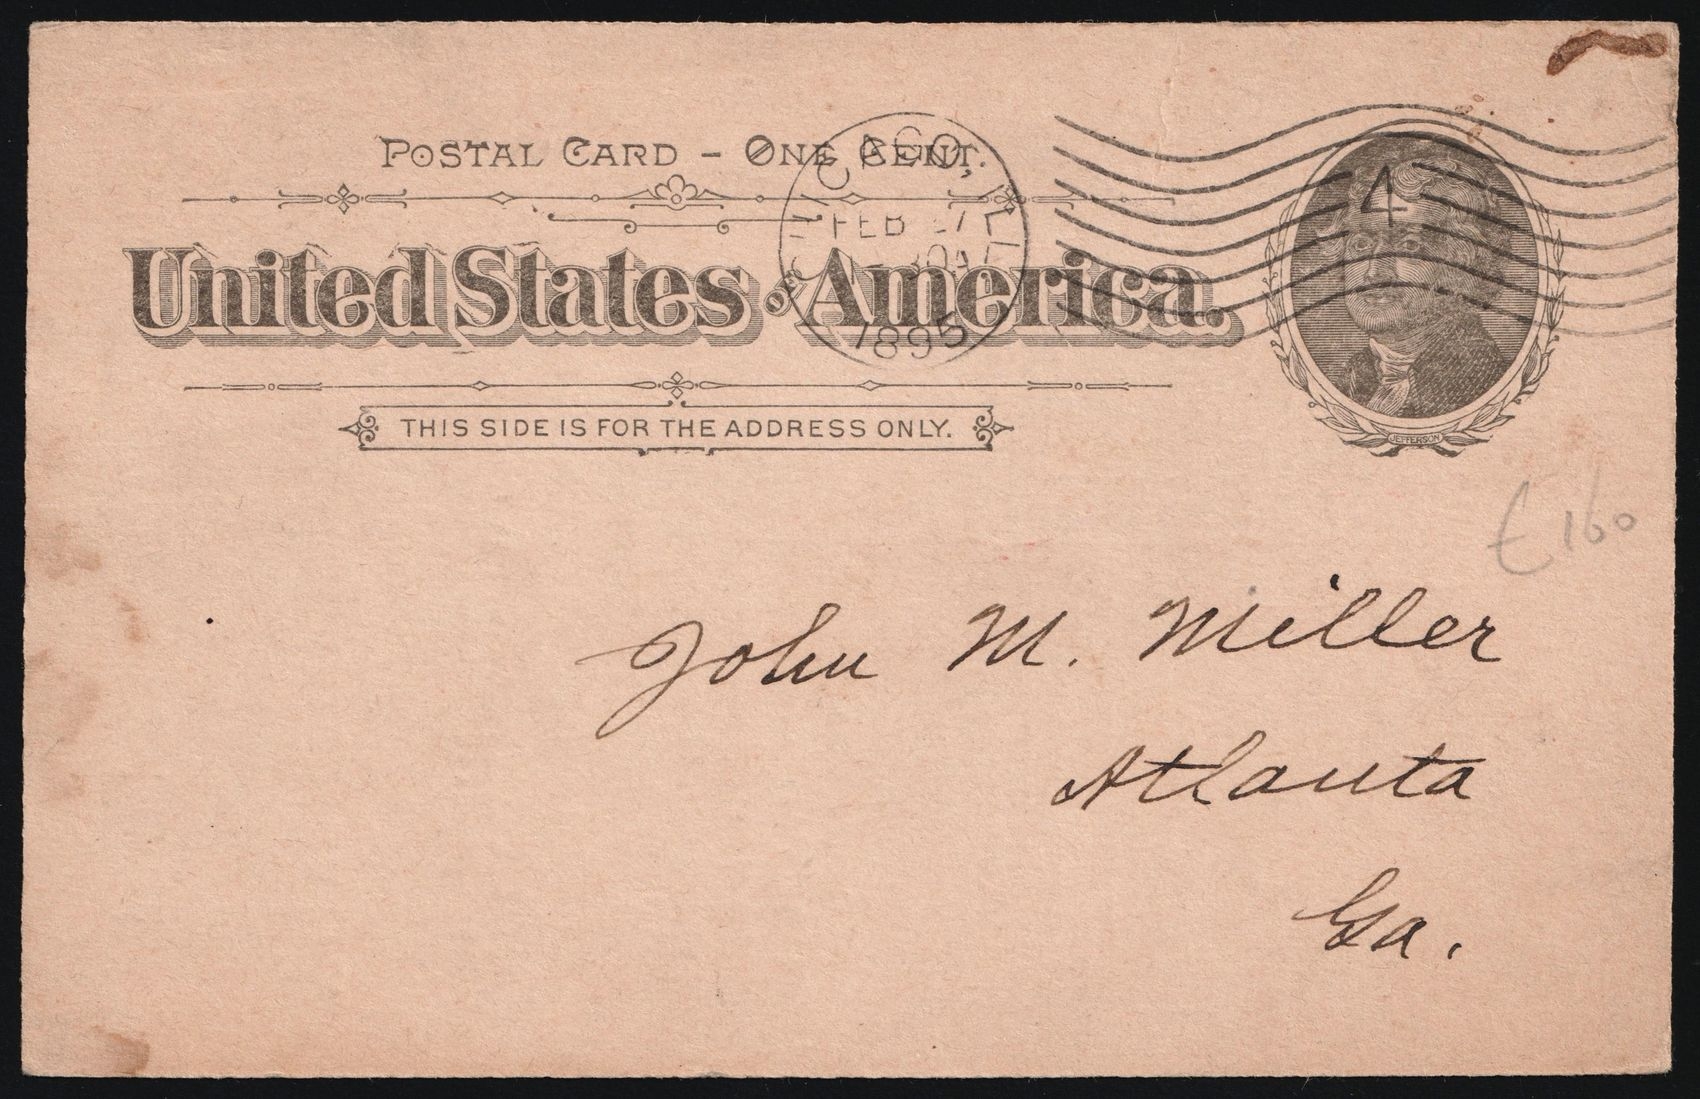 POSTAL CARD – ONE CENT.
CHICAGO, ILL.
FEB 27
30 A
1895
4
United States of America.
THIS SIDE IS FOR THE ADDRESS ONLY.
JEFFERSON
£160
John M. Miller
Atlanta
Ga.